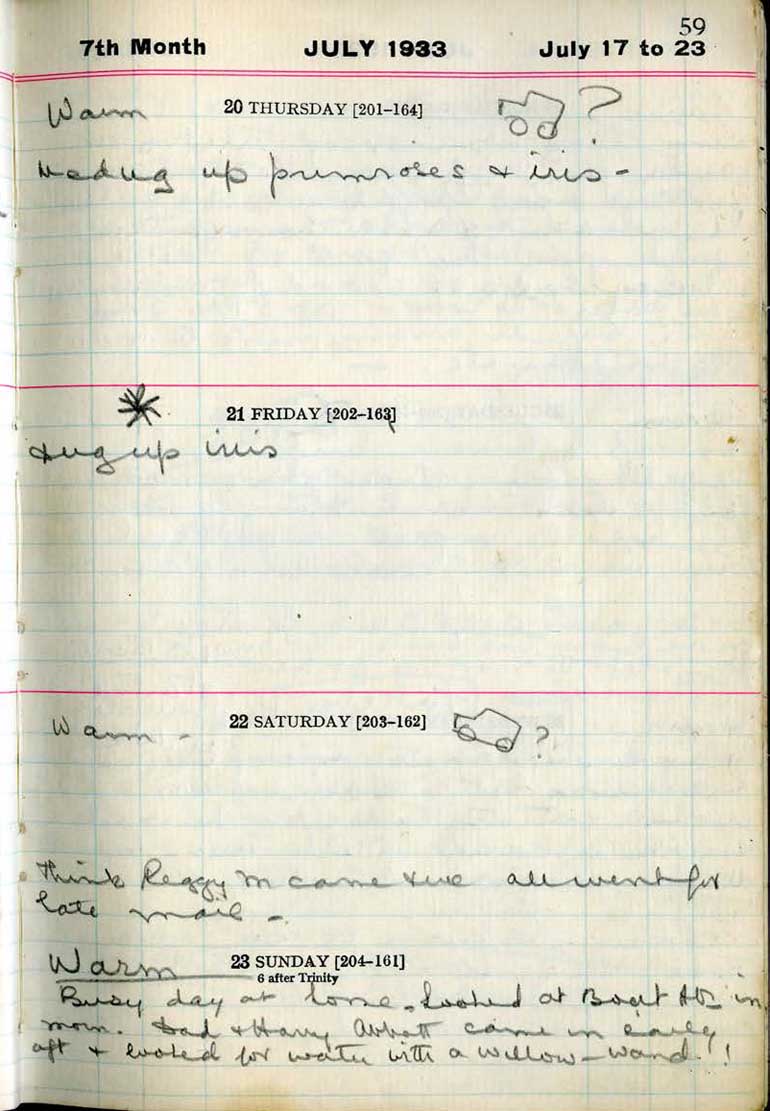 59
7th Month JULY 1933 July 17 to 23
Warm 20 THURSDAY [201-164] ?
up primroses & iris -
21 FRIDAY [202-163]
dug up iris
Warm - 22 SATURDAY [203-162] ?
Think Peggy M came & we all went for
late mail -
Warm 23 SUNDAY [204-161]
6 after Trinity
Busy day at home. Looked at Boat in
morn. Dad & Harry Abbott came in early
aft & looked for water with a willow-wand!!